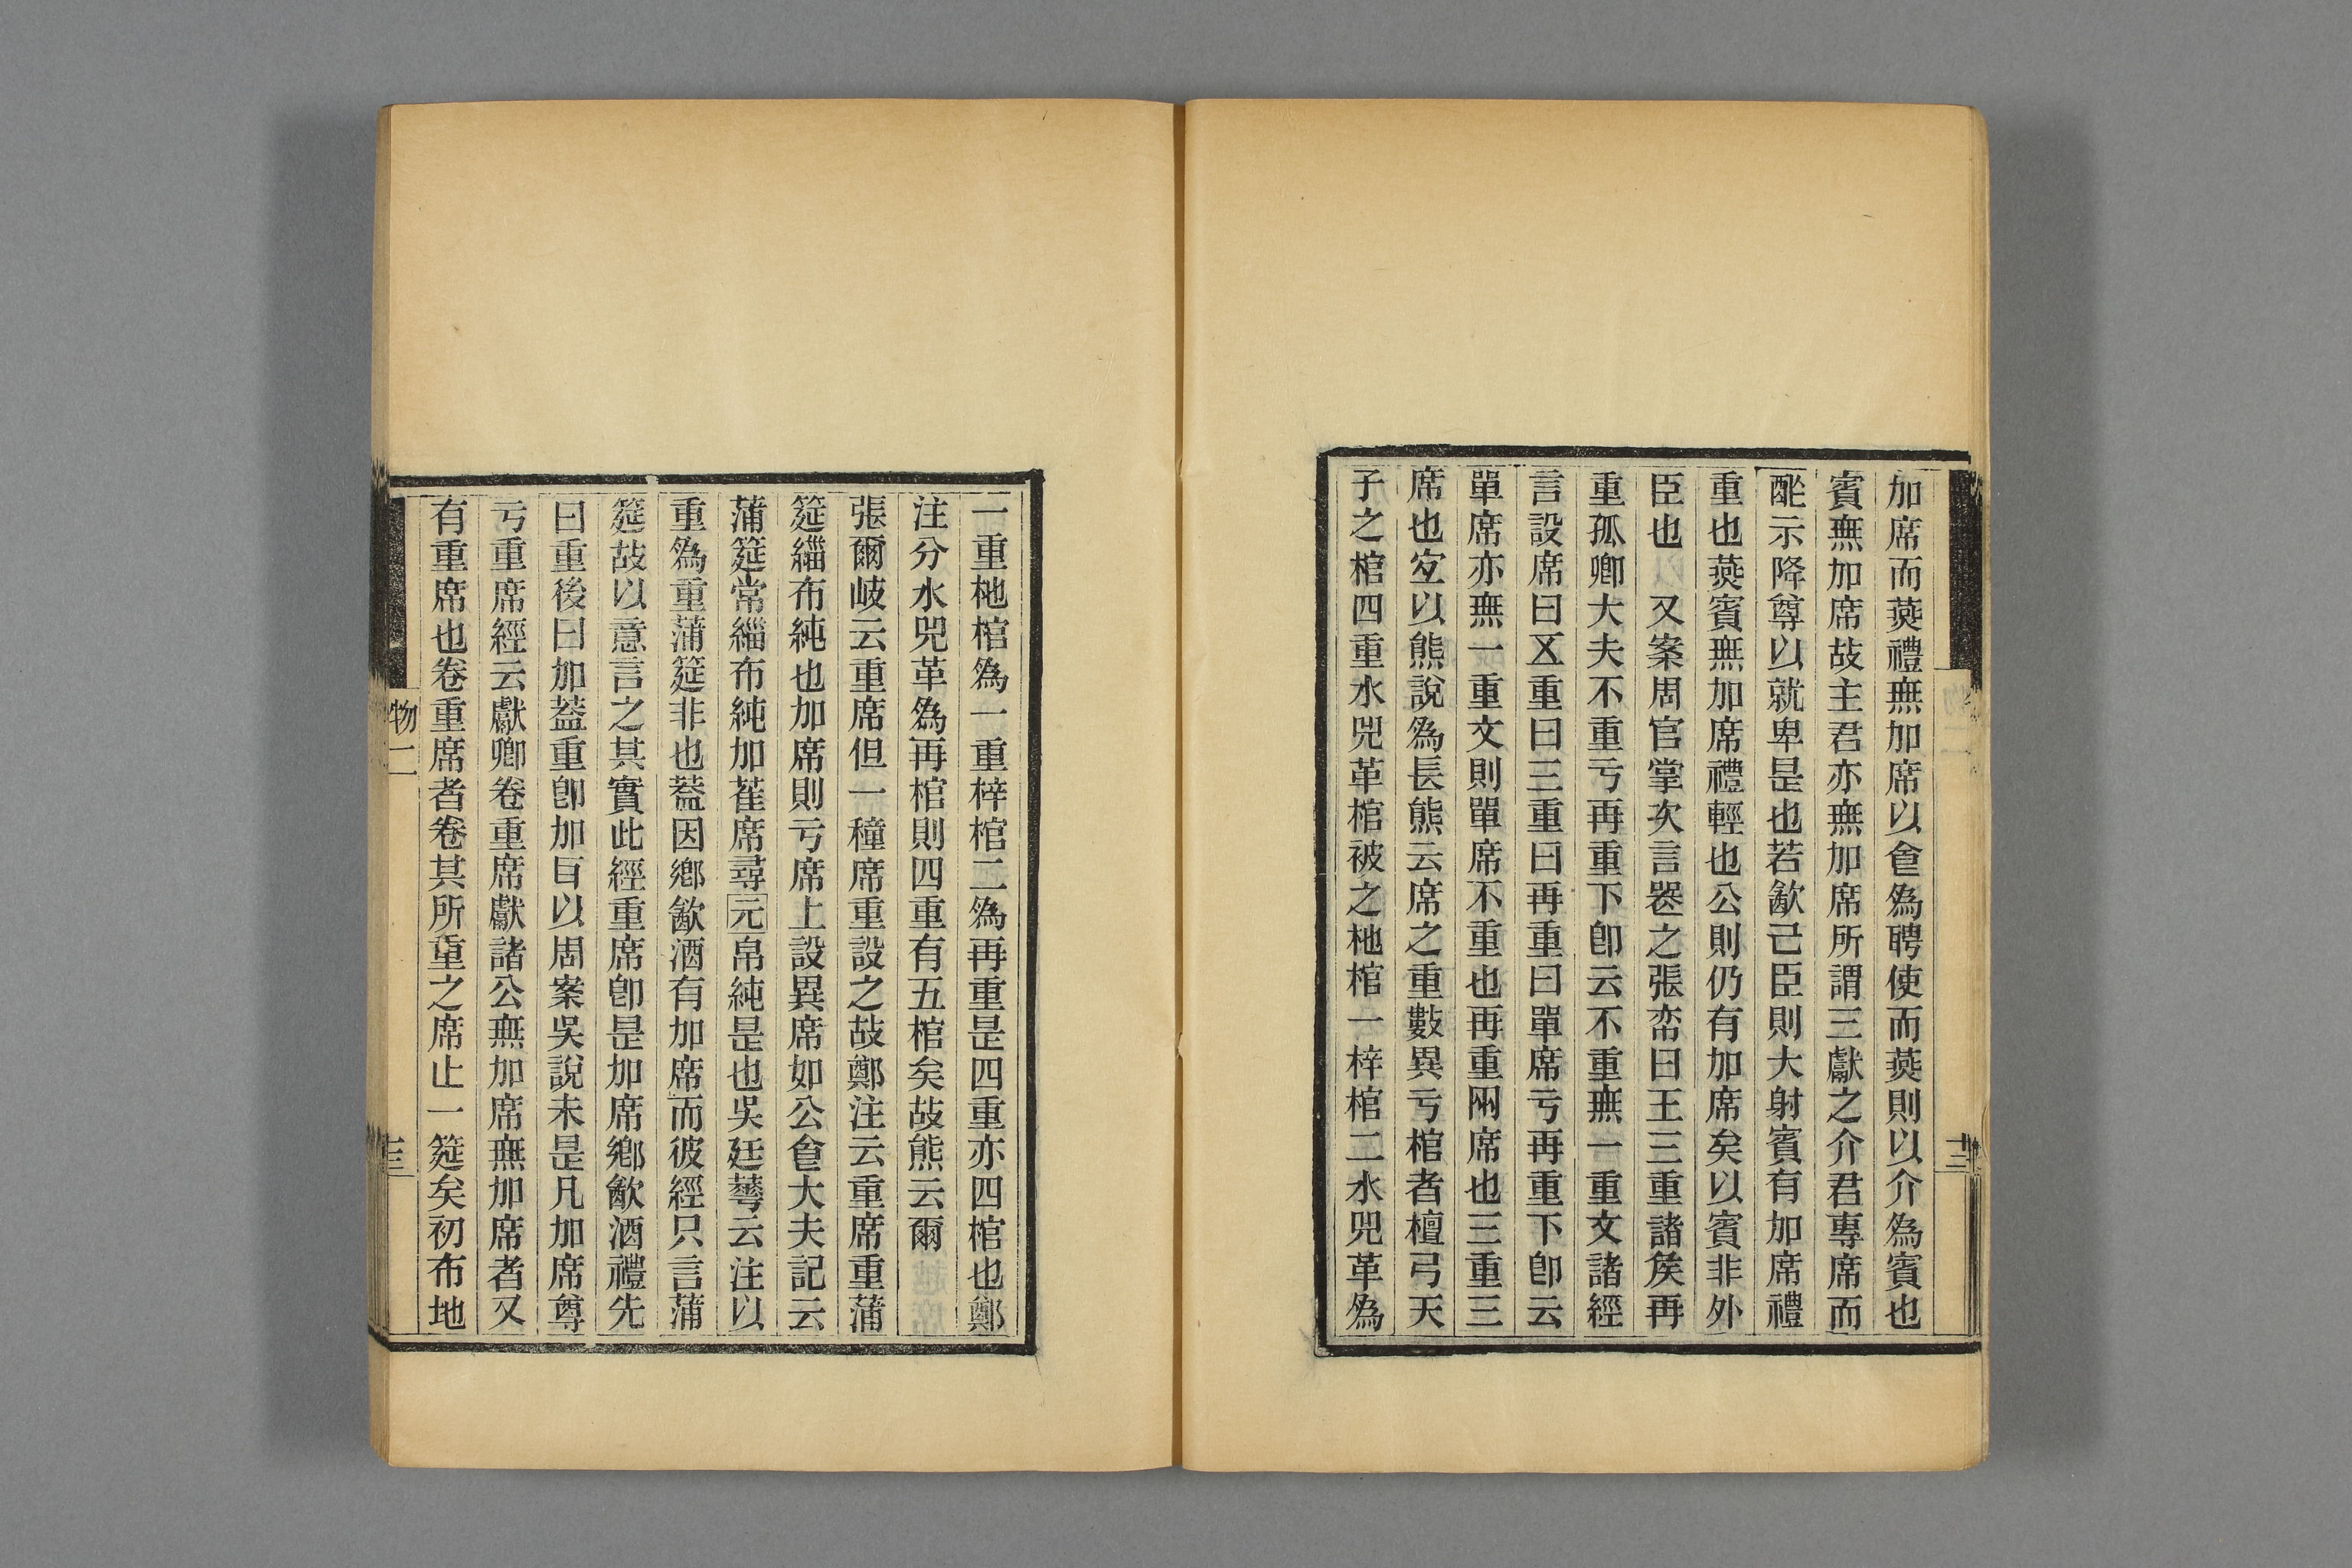 加席而燕禮無加席以㑹爲聘使而燕則以介為賓也
賓無加席故主君亦無加席所謂三獻之介君專席而
酢示降尊以就卑是也若歙己臣則大射賓有加席禮
重也燕賓無加席禮輕也公則仍有加席矣以賓非外
臣也　又案周官掌次言器之張帟曰王三重諸矦再
重孤卿大夫不重亏再重下卽云不重無一重文諸經
言設席曰㐅重曰三重曰再重曰單席亏再重下卽云
單席亦無一重文則單席不重也再重㒳席也三重三
席也㝎以熊說爲長熊云席之重數異亏棺者檀弓天
子之棺四重水兕革棺被之杝棺一梓棺二水兕革爲
一重杝棺爲一重梓棺二爲再重是四重亦四棺也鄭
注分水兕革爲再棺則四重有五棺矣故熊云爾
張爾岐云重席但一穜席重設之故鄭注云重席重蒲
筵緇布純也加席則亏席上設異席如公㑹大夫記云
蒲筵常緇布純加萑席尋元帛純是也吳廷華云注以
重爲重蒲筵非也葢因鄉歙酒有加席而彼經只言蒲
筵故以意言之其實此經重席卽是加席鄉歙酒禮先
曰重後曰加葢重卽加㠯以周案吳說未是凡加席尊
亏重席經云獻卿卷重席獻諸公無加席無加席者又
有重席也卷重席者卷其所重之席止一筵矣初布地
物二
十三